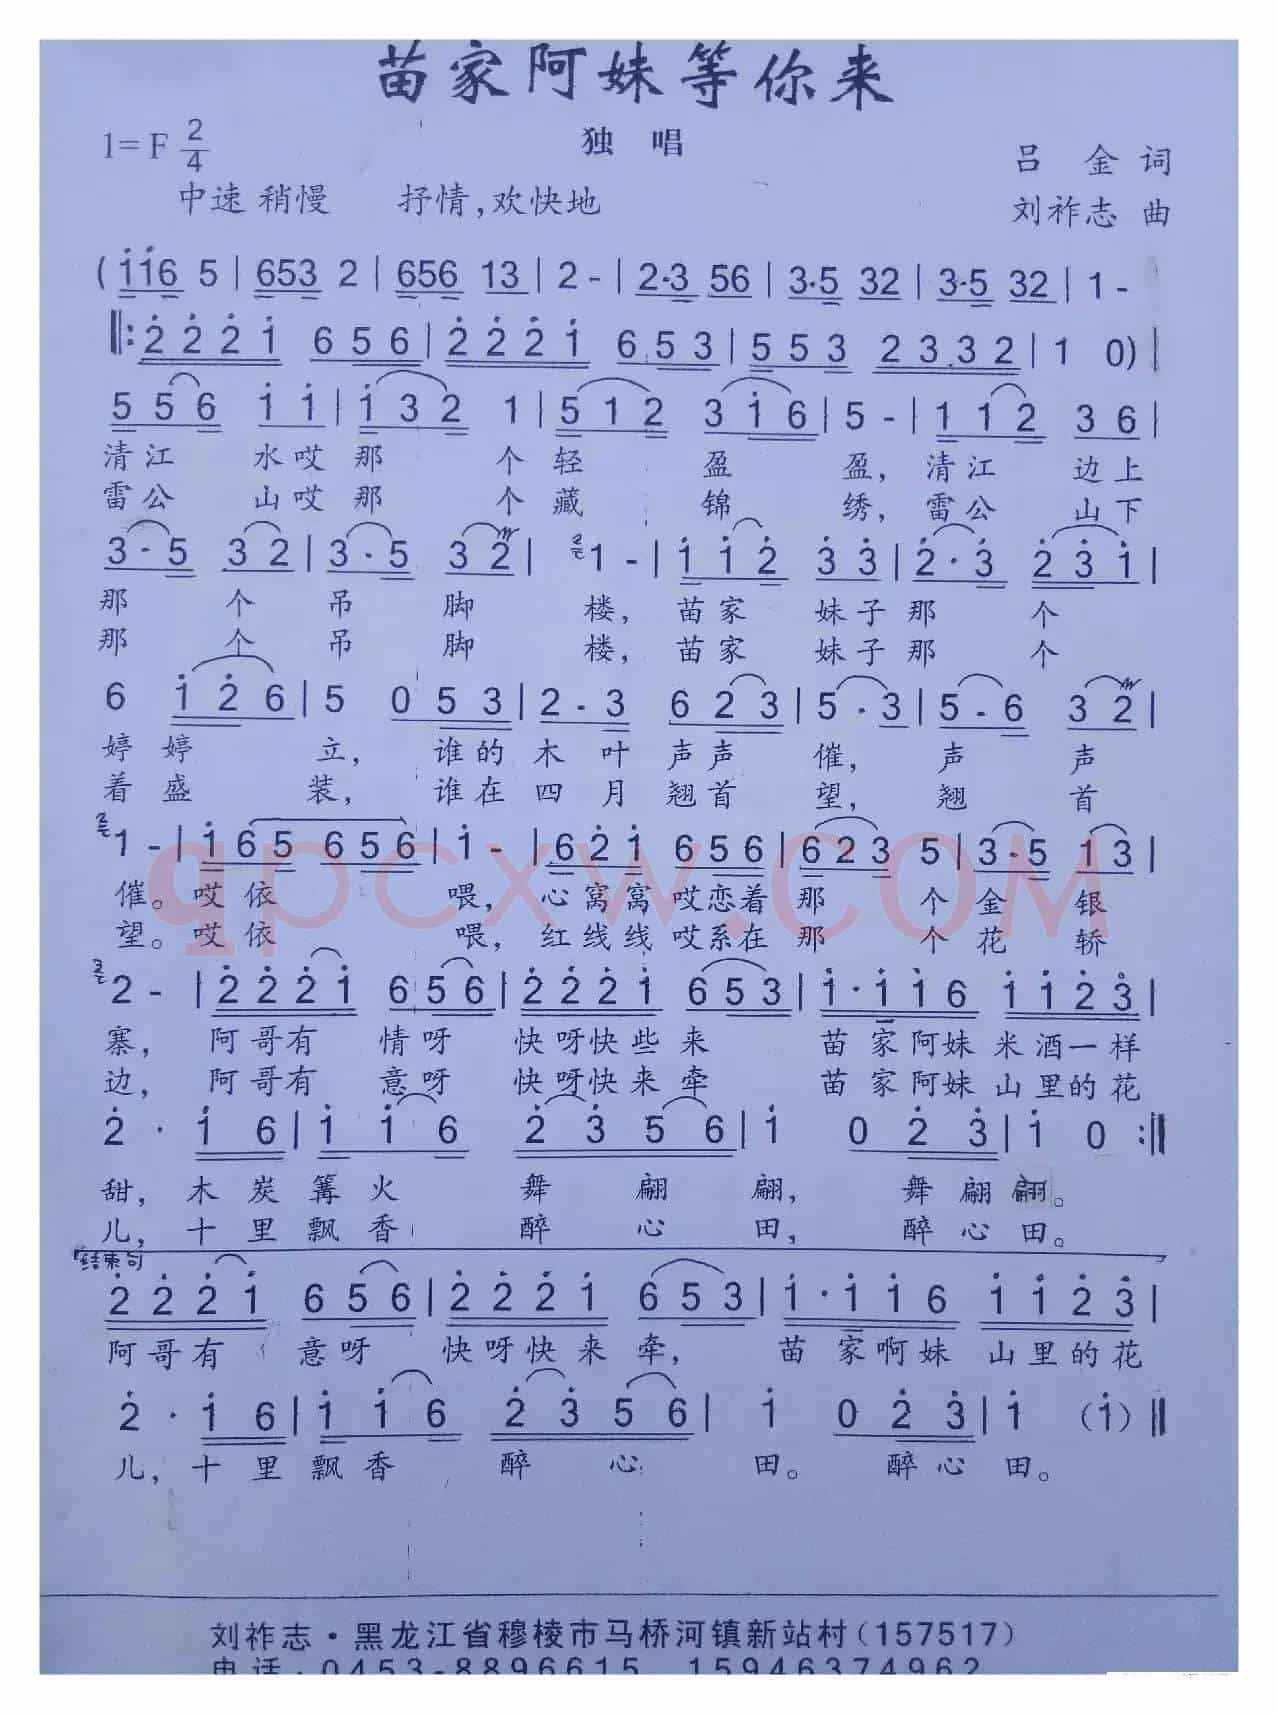 苗家阿妹等你来
独 唱
1= F 2/4
吕 金 词
中速 稍慢 抒情,欢快地
刘祚志 曲
( 1̇1̇6 5 | 653 2 | 656 13 | 2 - | 2·3 56 | 3·5 32 | 3·5 32 | 1 -
‖: 2̇ 2̇ 2̇ 1̇ 6 5 6 | 2̇ 2̇ 2̇ 1̇ 6 5 3 | 5 5 3 2 3 3 2 | 1 0) |
5 5 6 1̇ 1̇ | 1̇ 3 2 1 | 5 1 2 3 1̇ 6 | 5 - | 1 1 2 3 6 |
清江 水哎 那 个 轻 盈 盈, 清江 边上
雷公 山哎 那 个 藏 锦 绣, 雷公 山下
3·5 3 2 | 3·5 3 2 | 1 - | 1̇ 1̇ 2̇ 3̇ 3̇ | 2̇·3̇ 2̇ 3̇ 1̇ |
那 个 吊 脚 楼, 苗家 妹子 那 个
那 个 吊 脚 楼, 苗家 妹子 那 个
6 1̇ 2̇ 6 | 5 0 5 3 | 2·3 6 2 3 | 5·3 | 5·6 3 2 |
婷 婷 立, 谁的 木 叶 声声 催, 声 声
着 盛 装, 谁在 四 月 翘首 望, 翘 首
1 - | 1̇ 6 5 6 5 6 | 1̇ - | 6 2̇ 1̇ 6 5 6 | 6 2 3 5 | 3·5 1 3 |
催。哎 依 喂, 心 窝 窝 哎恋着 那 个 金 银
望。哎 依 喂, 红线线 哎系在 那 个 花 轿
2 - | 2̇ 2̇ 2̇ 1̇ 6 5 6 | 2̇ 2̇ 2̇ 1̇ 6 5 3 | 1̇·1̇ 1̇ 6 1̇ 1̇ 2̇ 3̇ |
寨, 阿哥有 情呀 快呀快些来 苗 家阿妹 米酒一样
边, 阿哥有 意呀 快呀快来牵 苗 家阿妹 山里的花
2̇ · 1̇ 6 | 1̇ 1̇ 6 2̇ 3̇ 5 6 | 1̇ 0 2̇ 3̇ | 1̇ 0 :‖
甜, 木 炭 篝 火 舞 翩 翩, 舞 翩 翩。
儿, 十 里 飘 香 醉 心 田, 醉 心 田。
结束句
2̇ 2̇ 2̇ 1̇ 6 5 6 | 2̇ 2̇ 2̇ 1̇ 6 5 3 | 1̇·1̇ 1̇ 6 1̇ 1̇ 2̇ 3̇ |
阿哥有 意呀 快呀快来牵, 苗 家啊妹 山里的花
2̇ · 1̇ 6 | 1̇ 1̇ 6 2̇ 3̇ 5 6 | 1̇ 0 2̇ 3̇ | 1̇ (1̇) ‖
儿, 十 里 飘 香 醉 心 田。 醉 心 田。
qpcxw.COM
刘祚志·黑龙江省穆棱市马桥河镇新站村(157517)
电话:0453-8896615 15946374962